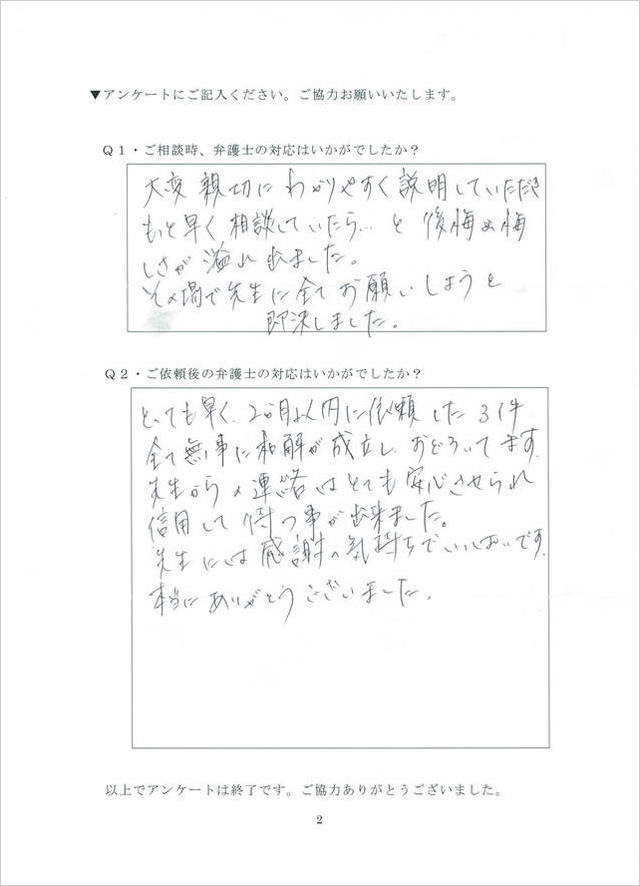 ▼アンケートにご記入ください。ご協力お願いいたします。
Q1・ご相談時、弁護士の対応はいかがでしたか？
大変親切にわかりやすく説明していただき
もっと早く相談していたら… と後悔と悔
しさが溢れ出ました。
その場で先生に全てお願いしようと
即決しました。
Q2・ご依頼後の弁護士の対応はいかがでしたか？
とっても早く、2か月以内に依頼した3件
全て無事に和解が成立し、おどろいてます。
先生からの連絡はとても安心させられ
信用して待つ事が出来ました。
先生には感謝の気持ちでいっぱいです。
本当にありがとうございました。
以上でアンケートは終了です。ご協力ありがとうございました。
2